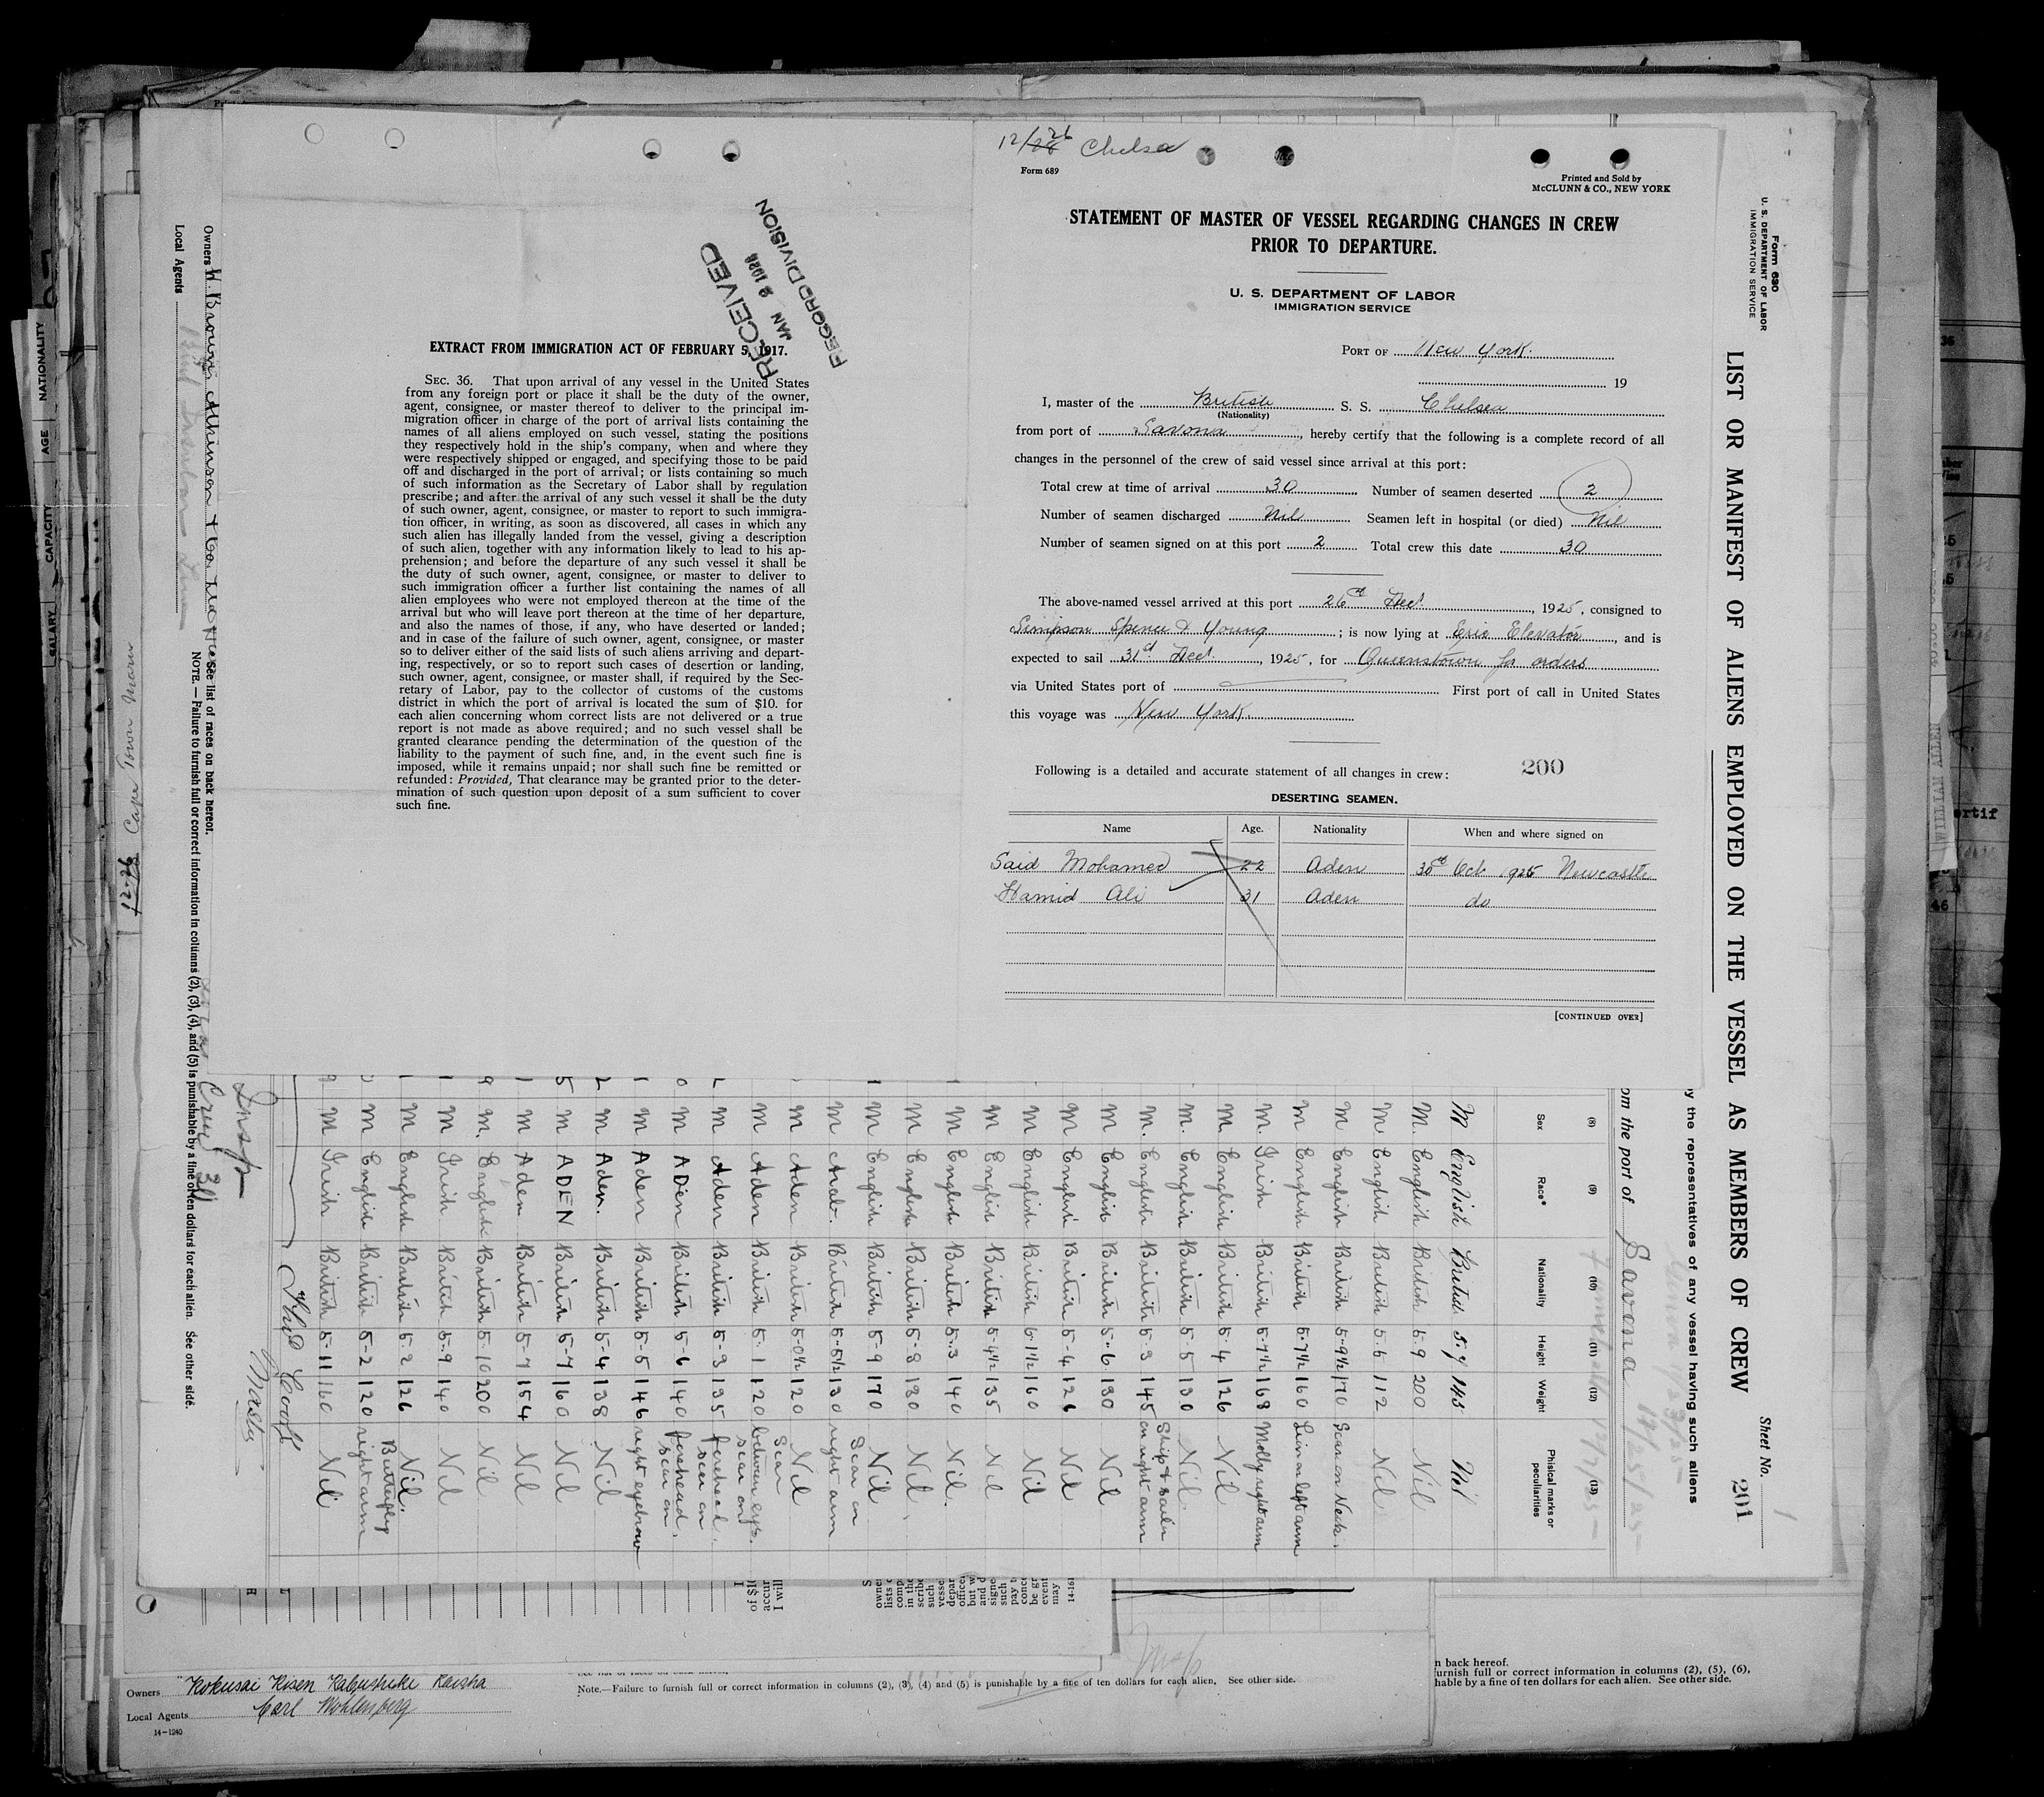 12/28 26 Chelsea
Form 689
Printed and Sold by
McCLUNN & CO., NEW YORK
STATEMENT OF MASTER OF VESSEL REGARDING CHANGES IN CREW
PRIOR TO DEPARTURE.
U. S. DEPARTMENT OF LABOR
IMMIGRATION SERVICE
PORT OF New York.
19
I, master of the British S. S. Chelsea
(Nationality)
from port of Savona, hereby certify that the following is a complete record of all
changes in the personnel of the crew of said vessel since arrival at this port:
Total crew at time of arrival 30 Number of seamen deserted 2
Number of seamen discharged Nil Seamen left in hospital (or died) Nil
Number of seamen signed on at this port 2 Total crew this date 30
The above-named vessel arrived at this port 26th Dect., 1925, consigned to
Simpson Spence & Young; is now lying at Erie Elevator, and is
expected to sail 31st Dect., 1925, for Queenstown for orders
via United States port of First port of call in United States
this voyage was New York.
Following is a detailed and accurate statement of all changes in crew: 200
DESERTING SEAMEN.
Name Age. Nationality When and where signed on
Said Mohamed 22 Aden 30th Oct 1925 Newcastle
Hamid Ali 31 Aden do
[CONTINUED OVER]
RECEIVED
JAN 2 1926
RECORD DIVISION
EXTRACT FROM IMMIGRATION ACT OF FEBRUARY 5, 1917.
SEC. 36. That upon arrival of any vessel in the United States
from any foreign port or place it shall be the duty of the owner,
agent, consignee, or master thereof to deliver to the principal im-
migration officer in charge of the port of arrival lists containing the
names of all aliens employed on such vessel, stating the positions
they respectively hold in the ship's company, when and where they
were respectively shipped or engaged, and specifying those to be paid
off and discharged in the port of arrival; or lists containing so much
of such information as the Secretary of Labor shall by regulation
prescribe; and after the arrival of any such vessel it shall be the duty
of such owner, agent, consignee, or master to report to such immigra-
tion officer, in writing, as soon as discovered, all cases in which any
such alien has illegally landed from the vessel, giving a description
of such alien, together with any information likely to lead to his ap-
prehension; and before the departure of any such vessel it shall be
the duty of such owner, agent, consignee, or master to deliver to
such immigration officer a further list containing the names of all
alien employees who were not employed thereon at the time of the
arrival but who will leave port thereon at the time of her departure,
and also the names of those, if any, who have deserted or landed;
and in case of the failure of such owner, agent, consignee, or master
so to deliver either of the said lists of such aliens arriving and depart-
ing, respectively, or so to report such cases of desertion or landing,
such owner, agent, consignee, or master shall, if required by the Sec-
retary of Labor, pay to the collector of customs of the customs
district in which the port of arrival is located the sum of $10. for
each alien concerning whom correct lists are not delivered or a true
report is not made as above required; and no such vessel shall be
granted clearance pending the determination of the question of the
liability to the payment of such fine, and, in the event such fine is
imposed, while it remains unpaid; nor shall such fine be remitted or
refunded: Provided, That clearance may be granted prior to the deter-
mination of such question upon deposit of a sum sufficient to cover
such fine.
Form 630
U. S. DEPARTMENT OF LABOR
IMMIGRATION SERVICE
LIST OR MANIFEST OF ALIENS EMPLOYED ON THE VESSEL AS MEMBERS OF CREW
Sheet No. 1
201
y the representatives of any vessel having such aliens
om the port of Savona
(8) (9) (10) (11) (12) (13)
Sex Race* Nationality Height Weight Phisical marks or peculiarities
M English British 5-7 145 Nil
M. English British 5-9 200 Nil
M English British 5-6 112 Nil
M English British 5-9½ 170 Scar on Neck.
M English British 5-7½ 160 Lion on left arm
M Irish British 5-7½ 168 Molly right arm
M English British 5-4 126 Nil
M. English British 5-5 130 Nil.
M. English British 5-3 145 Ship & Sailor on right arm
M English British 5-6 130 Nil
M English British 5-4 126 Nil
M English British 5-1½ 160 Nil
M English British 5-4½ 135 Nil
M English British 5-3 140 Nil.
M English British 5-8 130 Nil.
M English British 5-9 170 Nil
M Arab. British 5-5½ 130 Scar on right arm
M Aden British 5-0½ 120 Nil
M Aden British 5-1 120 Scar between eyes.
M Aden British 5-3 135 scar on forehead.
M ADen British 5-6 140 scar on forehead.
M Aden British 5-5 146 scar on right eyebrow
M Aden. British 5-4 138 Nil
M ADEN British 5-7 160 Nil
M Aden British 5-7 154 Nil
M. English British 5-10 200 Nil
M Irish British 5-9 140 Nil
M English British 5-2 126 Nil.
M English British 5-2 120 Butterfly right arm
M Irish British 5-11 160 Nil
Master
Crew 31
Insp
Owners W. Brown Atkinson & Co. Ltd
Local Agents
*See list of races on back hereof.
NOTE.—Failure to furnish full or correct information in columns (2), (3), (4), and (5) is punishable by a fine of ten dollars for each alien. See other side.
12-26 Cape Town Maru
NATIONALITY
AGE
CAPACITY
SALARY
Owners Kokusai Kisen Kabushiki Kaisha
Local Agents Carl Wohlenberg
14-1240
Note.—Failure to furnish full or correct information in columns (2), (3), (4) and (5) is punishable by a fine of ten dollars for each alien. See other side.
n back hereof.
urnish full or correct information in columns (2), (5), (6),
hable by a fine of ten dollars for each alien. See other side.